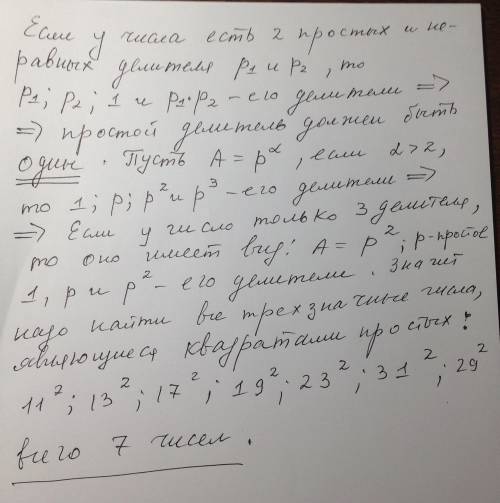 Если у числа есть 2 простых и не-
равных делителя p1 и p2, то
p1; p2; 1 и p1·p2 - его делители =>
=> простой делитель должен быть
один. Пусть A = p^α, если α>2,
то 1; p; p² и p³ - его делители =>
=> Если у число только 3 делителя,
то оно имеет вид: A = p²; p-простое
1, p и p² - его делители. Значит
надо найти все трехзначные числа,
являющиеся квадратами простых:
11²; 13²; 17²; 19²; 23²; 31²; 29²
всего 7 чисел.